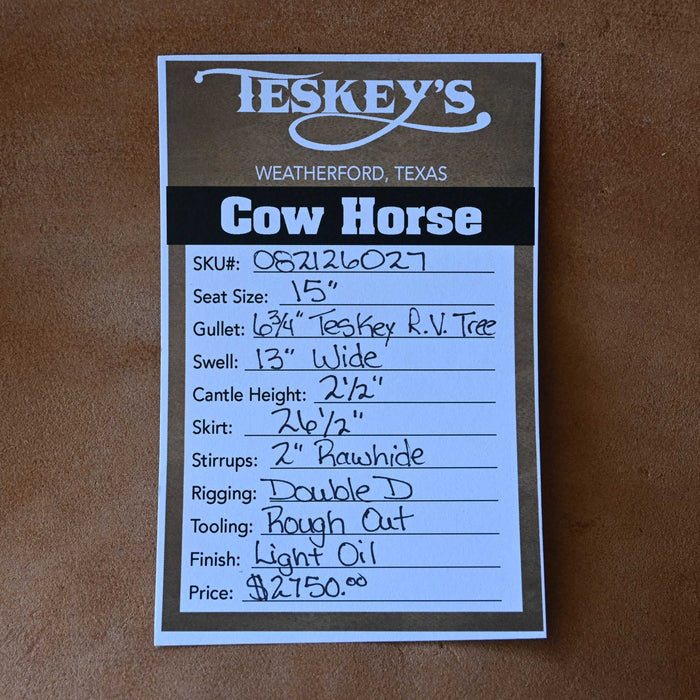 TESKEY'S
WEATHERFORD, TEXAS
Cow Horse
SKU#: 082126027
Seat Size: 15"
Gullet: 6 3/4" Teskey R.V. Tree
Swell: 13" Wide
Cantle Height: 2 1/2"
Skirt: 26 1/2"
Stirrups: 2" Rawhide
Rigging: Double D
Tooling: Rough Out
Finish: Light Oil
Price: $2750.00